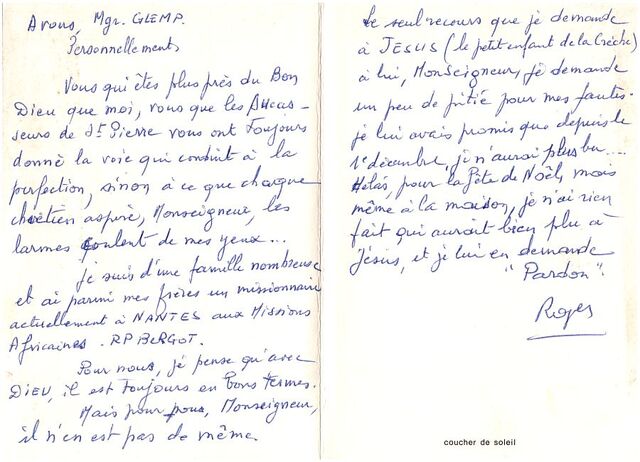 A vous, Mgr. GLEMP.
Personnellement,
Vous qui êtes plus près du Bon
Dieu que moi, vous que les Succes-
seurs de St Pierre vous ont toujours
donné la voie qui conduit à la
perfection, sinon à ce que chaque
chrétien aspire, Monseigneur, les
larmes coulent de mes yeux...
Je suis d'une famille nombreuse
et ai parmi mes frères un missionnaire
actuellement à NANTES aux Missions
Africaines. RP BERGOT.
Pour nous, je pense qu'avec
DIEU, il est toujours en bons termes.
Mais pour nous, Monseigneur,
il n'en est pas de même.
Le seul recours que je demande
à JESUS (le petit enfant de la Crèche)
à lui, Monseigneur, je demande
un peu de pitié pour mes fautes.
je lui avais promis que depuis le
1er décembre, je n'aurai plus bu....
Hélas, pour la Fête de Noël, mais
même à la maison, je n'ai rien
fait qui aurait bien plu à
Jésus, et je lui en demande
"Pardon".
Roger
coucher de soleil